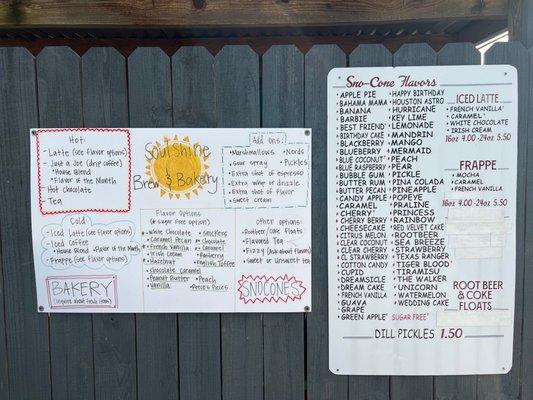 Hot
• Latte (see flavor options)
• Just a Joe (drip coffee)
• House Blend
• Flavor of the Month
Hot chocolate
• Tea
SoulShine
Brew & Bakery
Add ons:
• Marshmallows • Nerds
• Sour spray • Pickles
• Extra shot of espresso
• Extra whip or drizzle
• Extra shot of flavor
• Sweet cream
Cold
• Iced Latte (see flavor options)
• Iced Coffee
• House Blend • Flavor of the Month
• Frappe (see flavor options)
BAKERY
Flavor Options
(* sugar free options)
• White Chocolate
• Caramel Pecan
• French Vanilla
• Irish Cream
• Hazelnut
• Chocolate Caramel
• Peanut Butter
• Vanilla
• Snickers
• Chocolate
• Caramel
• English Toffee
• Peach
• Reese's Pieces
Other options:
• Rootbeer / Coke Floats
• Flavored Tea
• Fizzy (ask about flavors)
• Sweet or unsweet tea
SNOCONES
Sno-Cone Flavors
APPLE PIE
BAHAMA MAMA
BANANA
BARBIE
BEST FRIEND
BIRTHDAY CAKE
BLACKBERRY
BLUEBERRY
BLUE COCONUT*
BLUE RASPBERRY
BUBBLE GUM
BUTTER RUM
BUTTER PECAN
CANDY APPLE
CARAMEL
CHERRY*
CHERRY BERRY
CHEESECAKE
CITRUS MELON
CLEAR COCONUT
CLEAR CHERRY
CL STRAWBERRY
COTTON CANDY
CUPID
DREAMSICLE
DREAM CAKE
FRENCH VANILLA
GUAVA
GRAPE
GREEN APPLE*
• HAPPY BIRTHDAY
• HOUSTON ASTRO
• HURRICANE
• KEY LIME
• LEMONADE
• MANDRIN
• MANGO
• MERMAID
• PEACH
• PEAR
• PICKLE
• PINA COLADA
• PINEAPPLE
• POPEYE
• PRALINE
• PRINCESS
• RAINBOW
• RED VELVET CAKE
• ROOTBEER
• SEA BREEZE
• STRAWBERRY
• TEXAS RANGER
• TIGER BLOOD*
• TIRAMISU
• THE WALKER
• UNICORN
• WATERMELON
• WEDDING CAKE
SUGAR FREE*
ICED LATTE
• FRENCH VANILLA*
• CARAMEL*
• WHITE CHOCOLATE
• IRISH CREAM
16oz 4.00 24oz 5.50
FRAPPE
• MOCHA
• CARAMEL
• FRENCH VANILLA
16oz 4.50 24oz 5.50
ROOT BEER
& COKE
FLOATS
DILL PICKLES 1.50